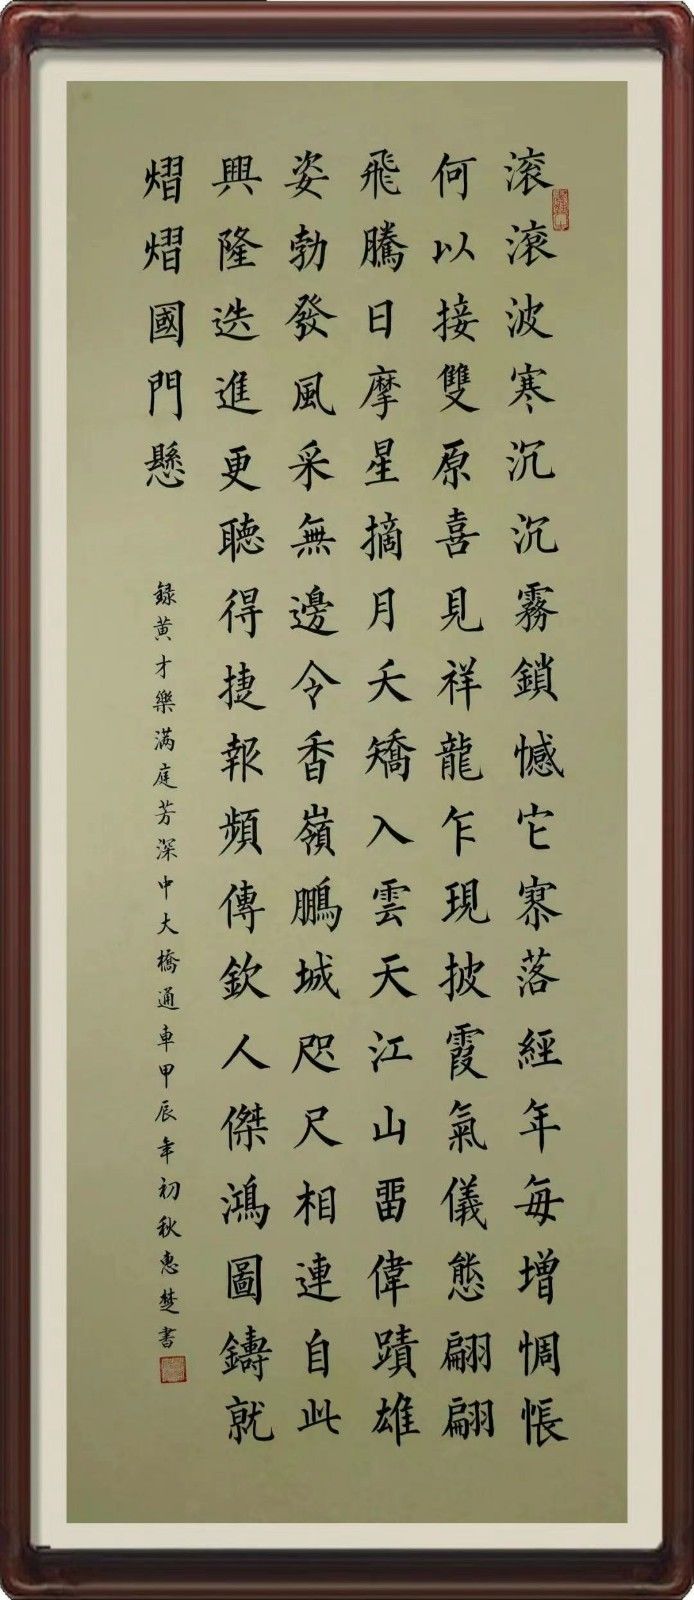 滚滚波寒沉沉霧鎖憾它寥落經年每增惆悵
何以接雙原喜見祥龍乍現披霞氣儀態翩翩
飛騰日摩星摘月夭矯入雲天江山畱偉蹟雄
姿勃發風采無邊令香嶺鵬城咫尺相連自此
興隆迭進更聽得捷報頻傳欽人傑鴻圖鑄就
熠熠國門懸
録黄才樂满庭芳深中大橋通車甲辰年初秋惠楚書